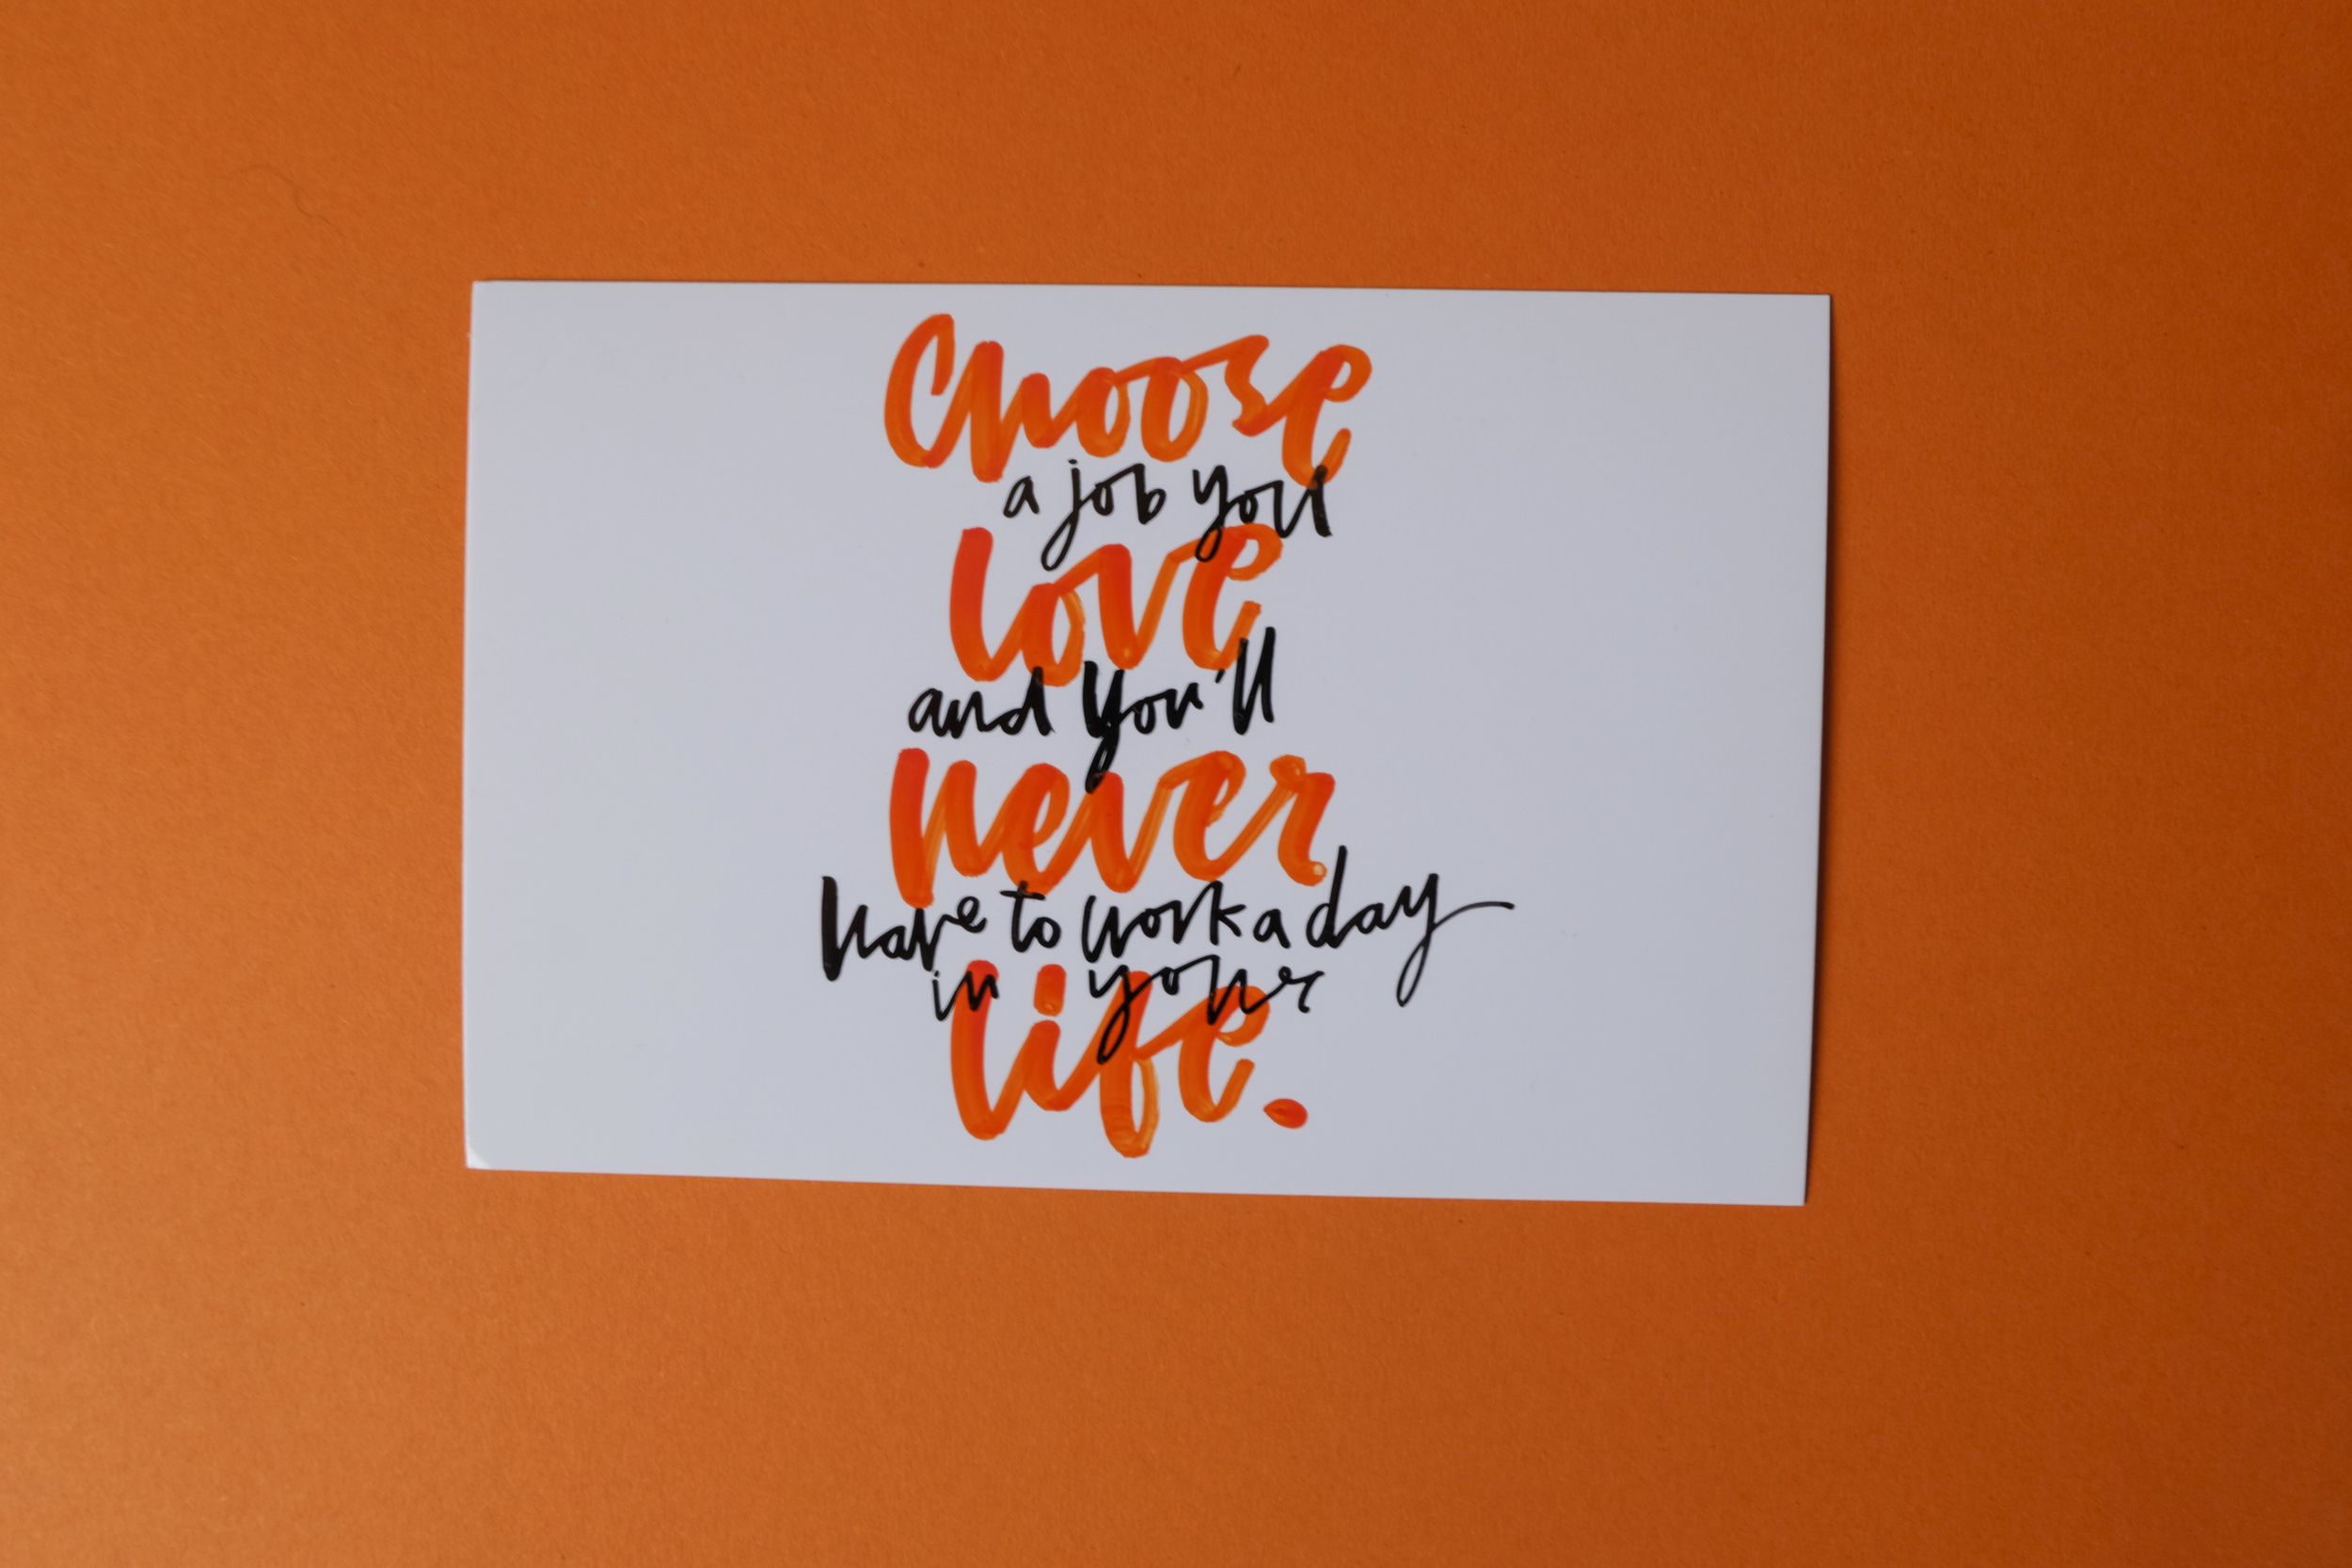 Choose
a job you
love
and you'll
never
have to work a day
in your
life.